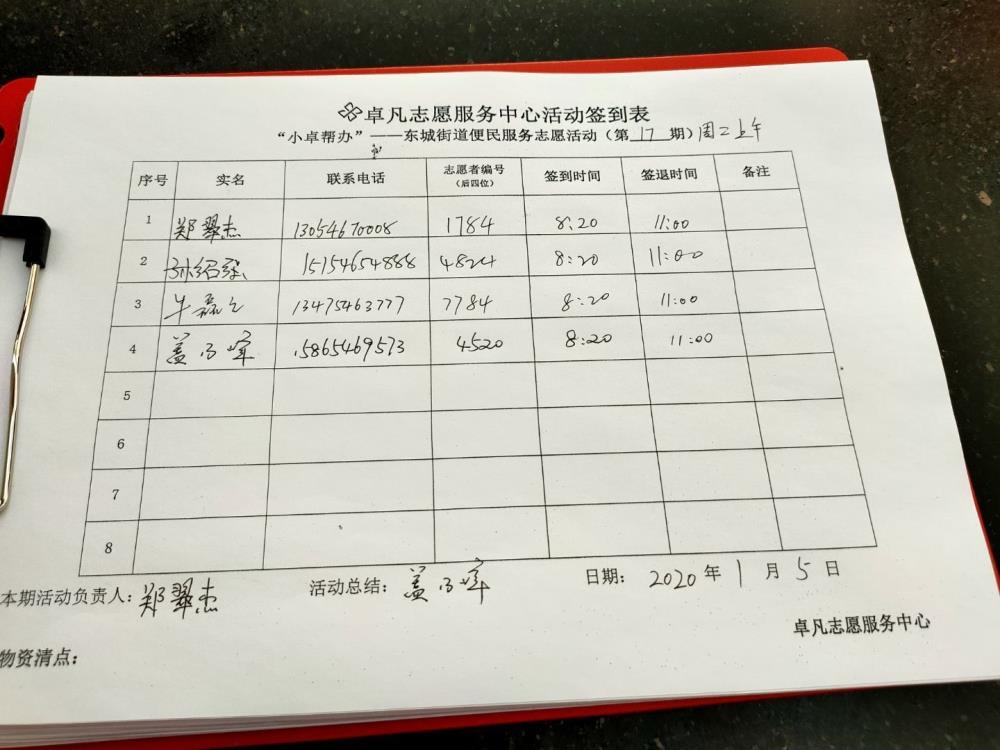 卓凡志愿服务中心活动签到表
“小卓帮办”——东城街道便民服务志愿活动（第 17 期）周二上午
序号 实名 联系电话 志愿者编号（后四位） 签到时间 签退时间 备注
1 郑翠杰 13054670008 1784 8:20 11:00
2 15154654888 4824 8:20 11:00
3 牛磊之 13475463777 7784 8:20 11:00
4 盖乃峰 15865469573 4520 8:20 11:00
5
6
7
8
本期活动负责人：郑翠杰 活动总结：盖乃峰 日期：2020 年 1 月 5 日
卓凡志愿服务中心
物资清点：